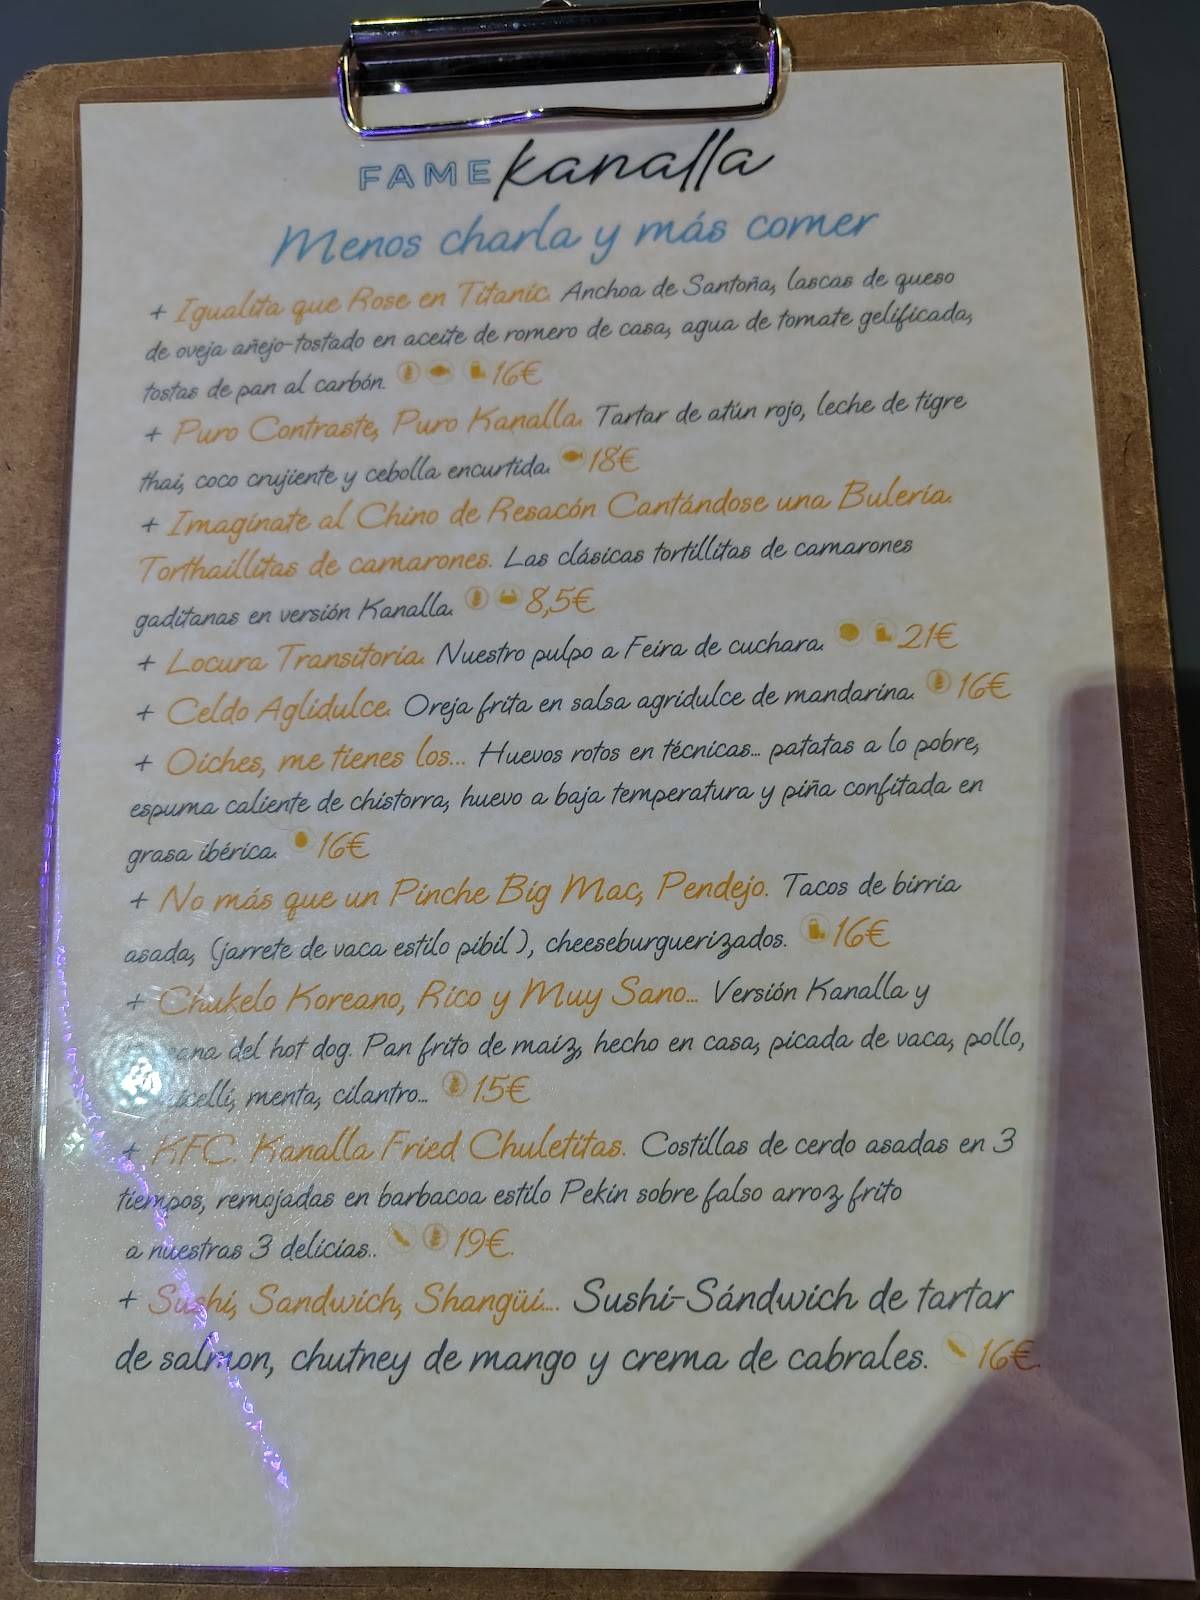 FAME Kanalla
Menos charla y más comer
+ Igualita que Rose en Titanic. Anchoa de Santoña, lascas de queso
de oveja añejo-tostado en aceite de romero de casa, agua de tomate gelificada,
tostas de pan al carbón. 16€
+ Puro Contraste, Puro Kanalla. Tartar de atún rojo, leche de tigre
thai, coco crujiente y cebolla encurtida. 18€
+ Imagínate al Chino de Resacón Cantándose una Bulería.
Torthaillitas de camarones. Las clásicas tortillitas de camarones
gaditanas en versión Kanalla. 8,5€
+ Locura Transitoria. Nuestro pulpo a Feira de cuchara. 21€
+ Celdo Aglidulce. Oreja frita en salsa agridulce de mandarina. 16€
+ Oiches, me tienes los... Huevos rotos en técnicas... patatas a lo pobre,
espuma caliente de chistorra, huevo a baja temperatura y piña confitada en
grasa ibérica. 16€
+ No más que un Pinche Big Mac, Pendejo. Tacos de birria
asada, (jarrete de vaca estilo pibil), cheeseburguerizados. 16€
+ Chukelo Koreano, Rico y Muy Sano... Versión Kanalla y
del hot dog. Pan frito de maíz, hecho en casa, picada de vaca, pollo,
menta, cilantro... 15€
+ KFC. Kanalla Fried Chuletitas. Costillas de cerdo asadas en 3
tiempos, remojadas en barbacoa estilo Pekin sobre falso arroz frito
a nuestras 3 delicias.. 19€.
+ Sushi, Sandwich, Shangüi.... Sushi-Sándwich de tartar
de salmon, chutney de mango y crema de cabrales. 16€.